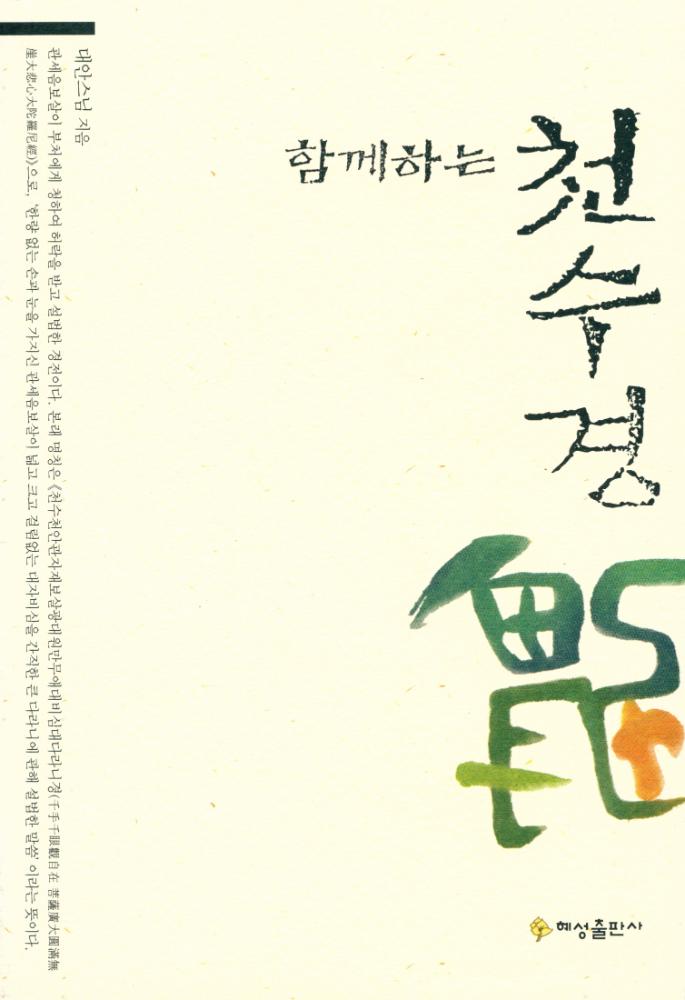 함께하는
천수경
대안스님 지음
관세음보살이 부처에게 청하여 허락을 받고 설법한 경전이다. 본래 명칭은 《천수천안관자재보살광대원만무애대비심대다라니경(千手千眼觀自在 菩薩廣大圓滿無
崖大悲心大陀羅尼經)》으로, '한량 없는 손과 눈을 가지신 관세음보살이 넓고 크고 걸림없는 대자비심을 간직한 큰 다라니에 관해 설법한 말씀' 이라는 뜻이다.
혜성출판사